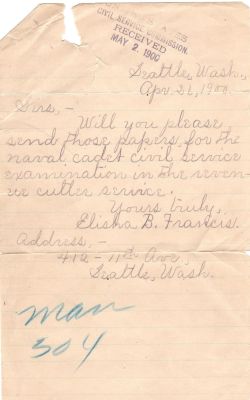 CIVIL SERVICE COMMISSION.
RECEIVED
MAY 2, 1900
Seattle, Wash.,
Apr. 26, 1900.
Sirs,-
Will you please
send those papers for the
naval cadet civil service
examination in the reven-
ue cutter service.
Yours truly,
Elisha B. Francis.
Address,-
416-11th Ave,
Seattle, Wash.
Man
304